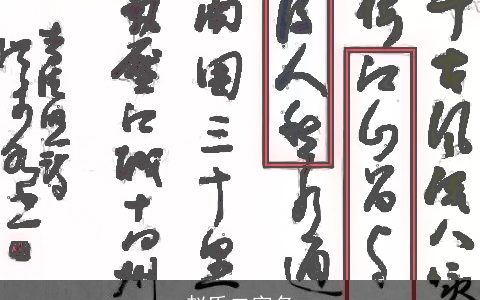 千古风流八咏
楼江山留与
后人愁水通
南国三千里
气压江城十四州
李清照诗